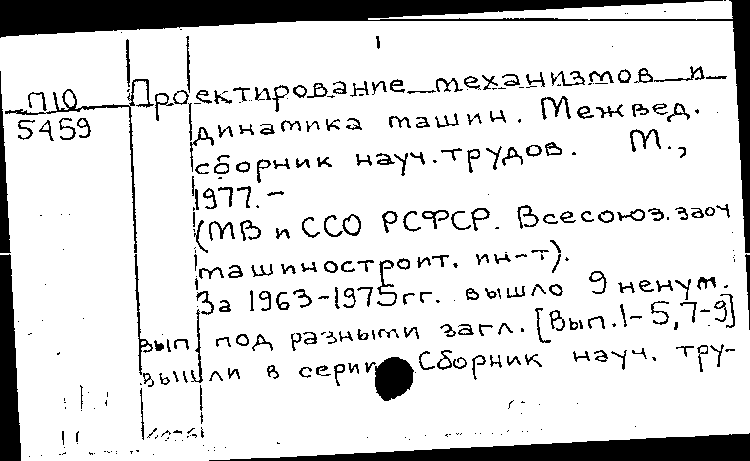 1
П10 Проектирование механизмов и
5459 динамика машин. Межвед.
сборник науч.трудов. М.,
1977.-
(МВ и ССО РСФСР. Всесоюз.заоч
машиностроит. ин-т).
За 1963-1975гг. вышло 9 ненум.
вып. под разными загл. [Вып.1-5,7-9]
вышли в серии Сборник науч. тру-